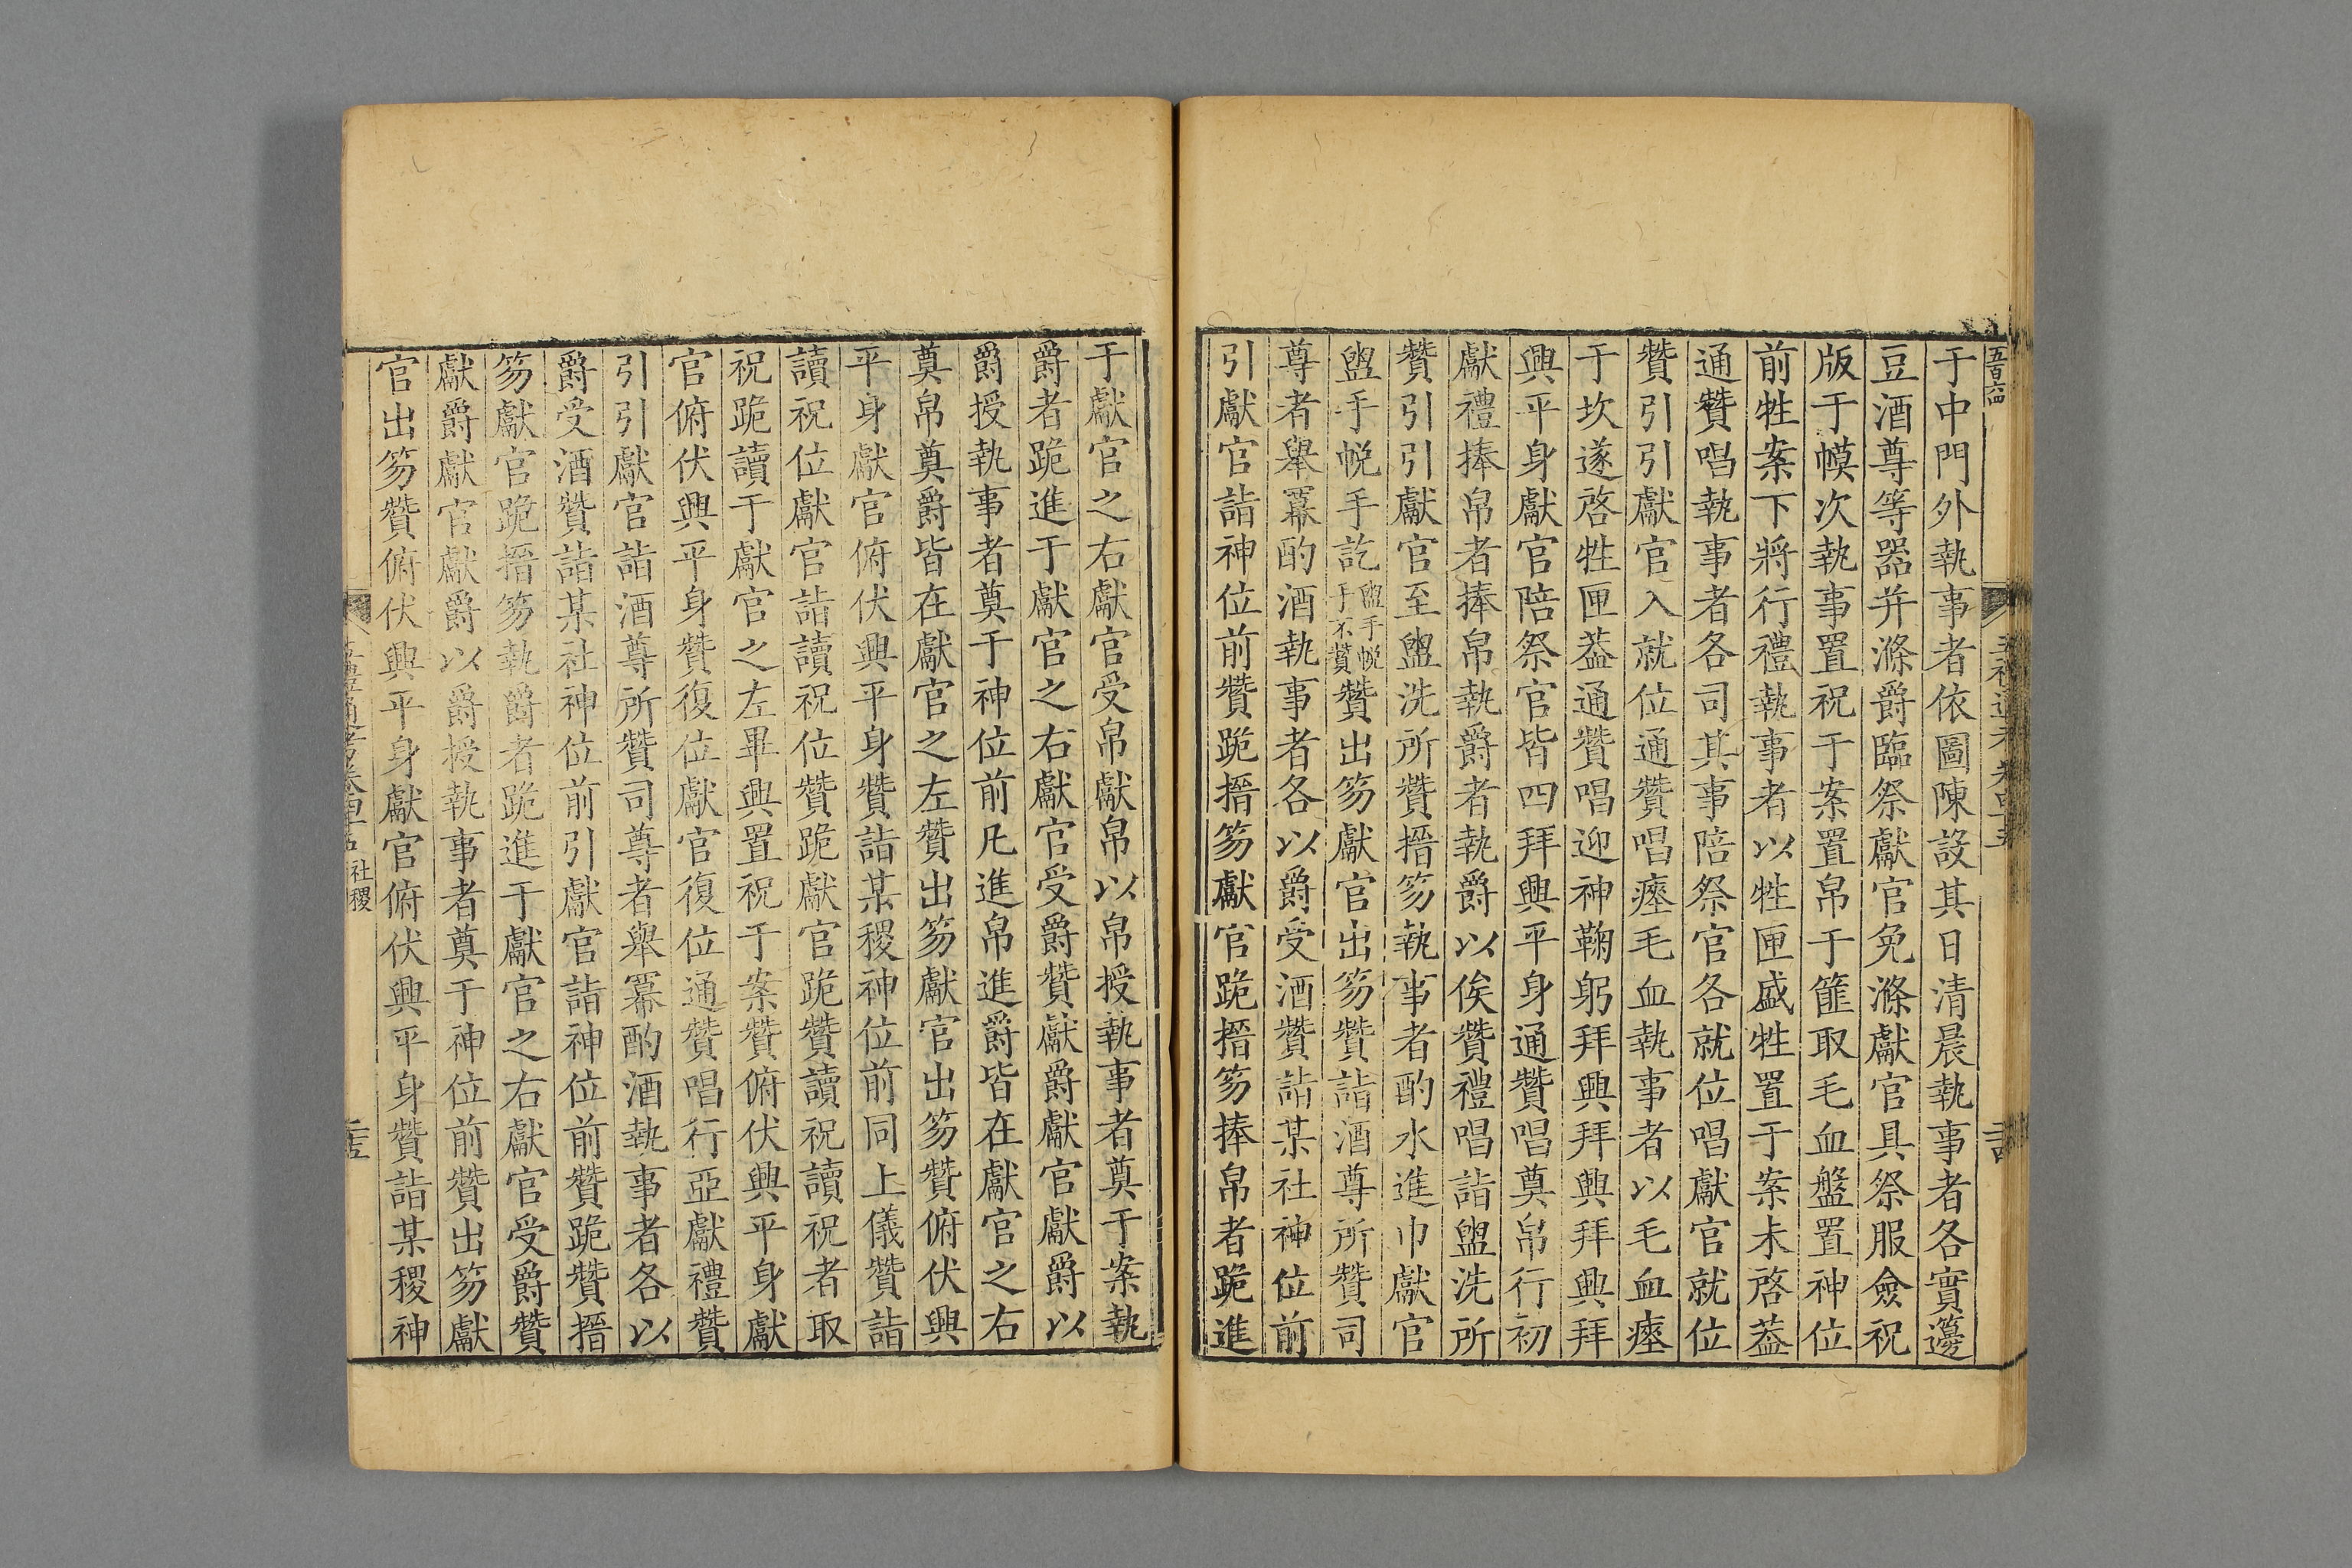 于中門外執事者依圖陳設其日清晨執事者各實籩
豆酒尊等器并滌爵臨祭獻官免滌獻官具祭服僉祝
版于幙次執事置祝于案置帛于篚取毛血盤置神位
前牲案下將行禮執事者以牲匣盛牲置于案未啓葢
通贊唱執事者各司其事陪祭官各就位唱獻官就位
贊引引獻官入就位通贊唱瘞毛血執事者以毛血瘞
于坎遂啓牲匣葢通贊唱迎神鞠躬拜興拜興拜興拜
興平身獻官陪祭官皆四拜興平身通贊唱奠帛行初
獻禮捧帛者捧帛執爵者執爵以俟贊禮唱詣盥洗所
贊引引獻官至盥洗所贊搢笏執事者酌水進巾獻官
盥手帨手訖盥手帨手不贊贊出笏獻官出笏贊詣酒尊所贊司
尊者舉羃酌酒執事者各以爵受酒贊詣某社神位前
引獻官詣神位前贊跪搢笏獻官跪搢笏捧帛者跪進
于獻官之右獻官受帛獻帛以帛授執事者奠于案執
爵者跪進于獻官之右獻官受爵贊獻爵獻官獻爵以
爵授執事者奠于神位前凡進帛進爵皆在獻官之右
奠帛奠爵皆在獻官之左贊出笏獻官出笏贊俯伏興
平身獻官俯伏興平身贊詣某稷神位前同上儀贊詣
讀祝位獻官詣讀祝位贊跪獻官跪贊讀祝讀祝者取
祝跪讀于獻官之左畢興置祝于案贊俯伏興平身獻
官俯伏興平身贊復位獻官復位通贊唱行亞獻禮贊
引引獻官詣酒尊所贊司尊者舉羃酌酒執事者各以
爵受酒贊詣某社神位前引獻官詣神位前贊跪贊搢
笏獻官跪搢笏執爵者跪進于獻官之右獻官受爵贊
獻爵獻官獻爵以爵授執事者奠于神位前贊出笏獻
官出笏贊俯伏興平身獻官俯伏興平身贊詣某稷神
社稷